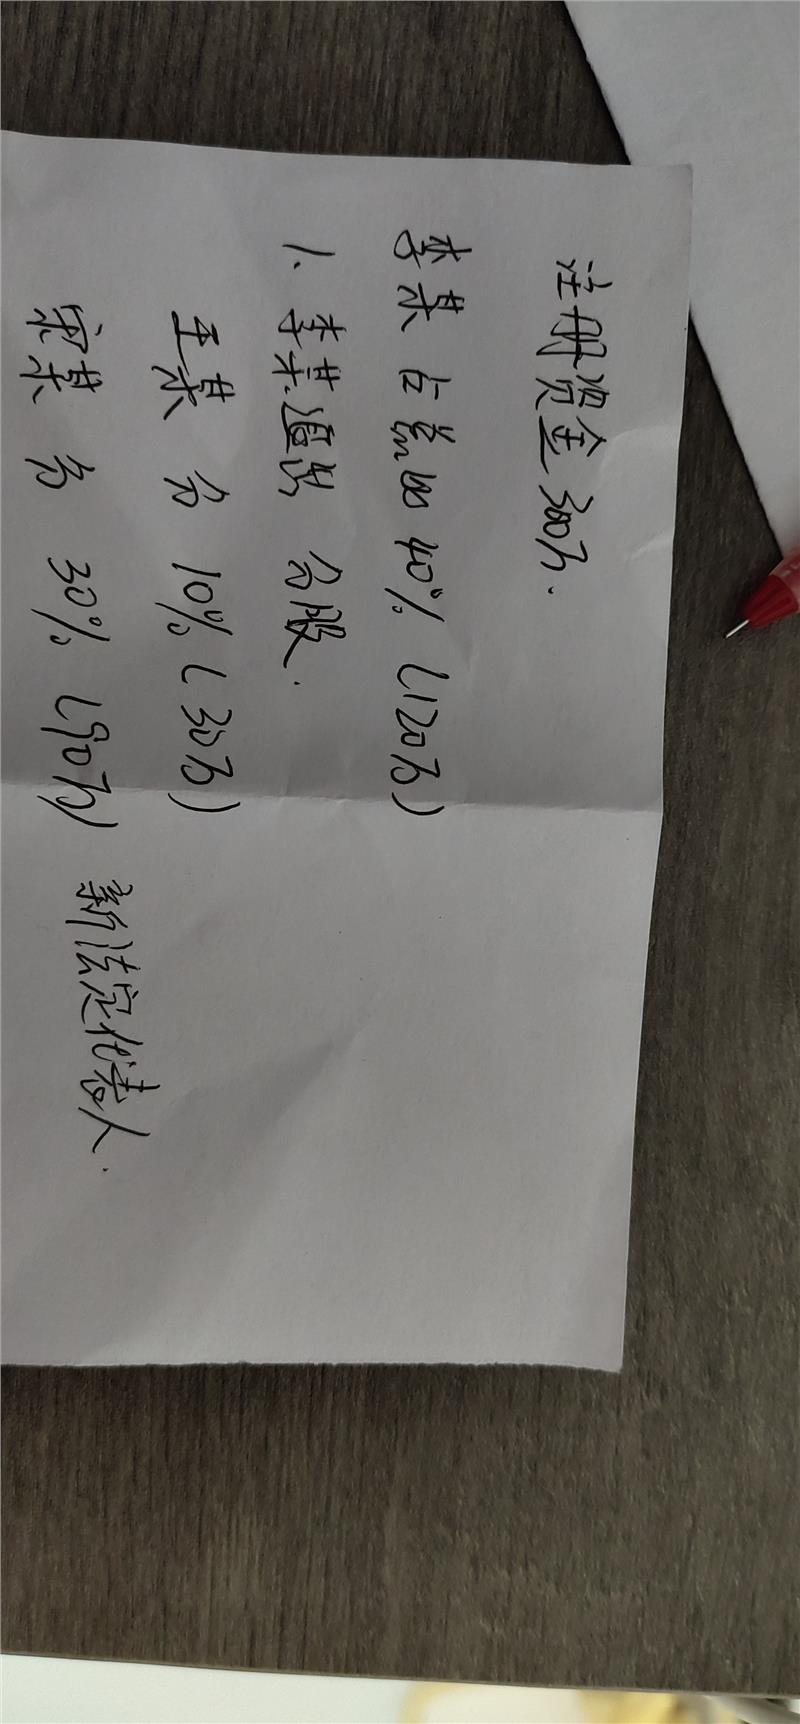 注册资金300万.
李某 占总的40%(120万)
1、李某退出 分股.
王某 分 10%(30万)
宋某 分 30%(90万) 新法定代表人.